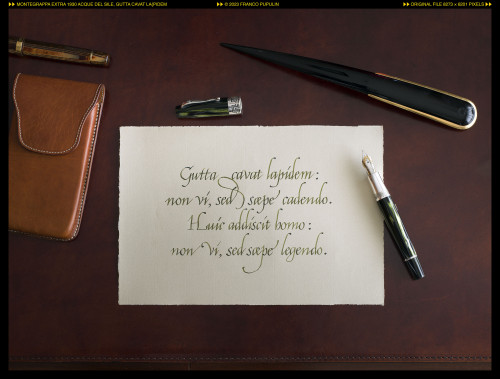 MONTEGRAPPA EXTRA 1930 ACQUE DEL SILE, GUTTA CAVAT LA[PIDEM
© 2023 FRANCO PUPULIN
ORIGINAL FILE 8273 × 6201 PIXELS
Gutta cavat lapidem:
non vi, sed sæpe cadendo.
Huic addiscit homo:
non vi, sed sæpe legendo.